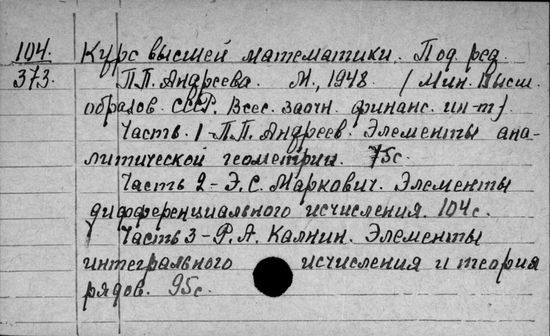 104. Курс высшей математики. Под ред.
373. П.П. Андреева. М., 1948. (Мин. Высш.
образов. СССР. Всес. заочн. финанс. ин-т)
Часть. 1 - П.П. Андреев. Элементы ана-
литической геометрии. 75с.
Часть 2 - Э.С. Маркович. Элементы
дифференциального исчисления. 104с.
Часть 3 - Р.А. Калнин. Элементы
интегрального исчисления и теория
рядов. 95с.